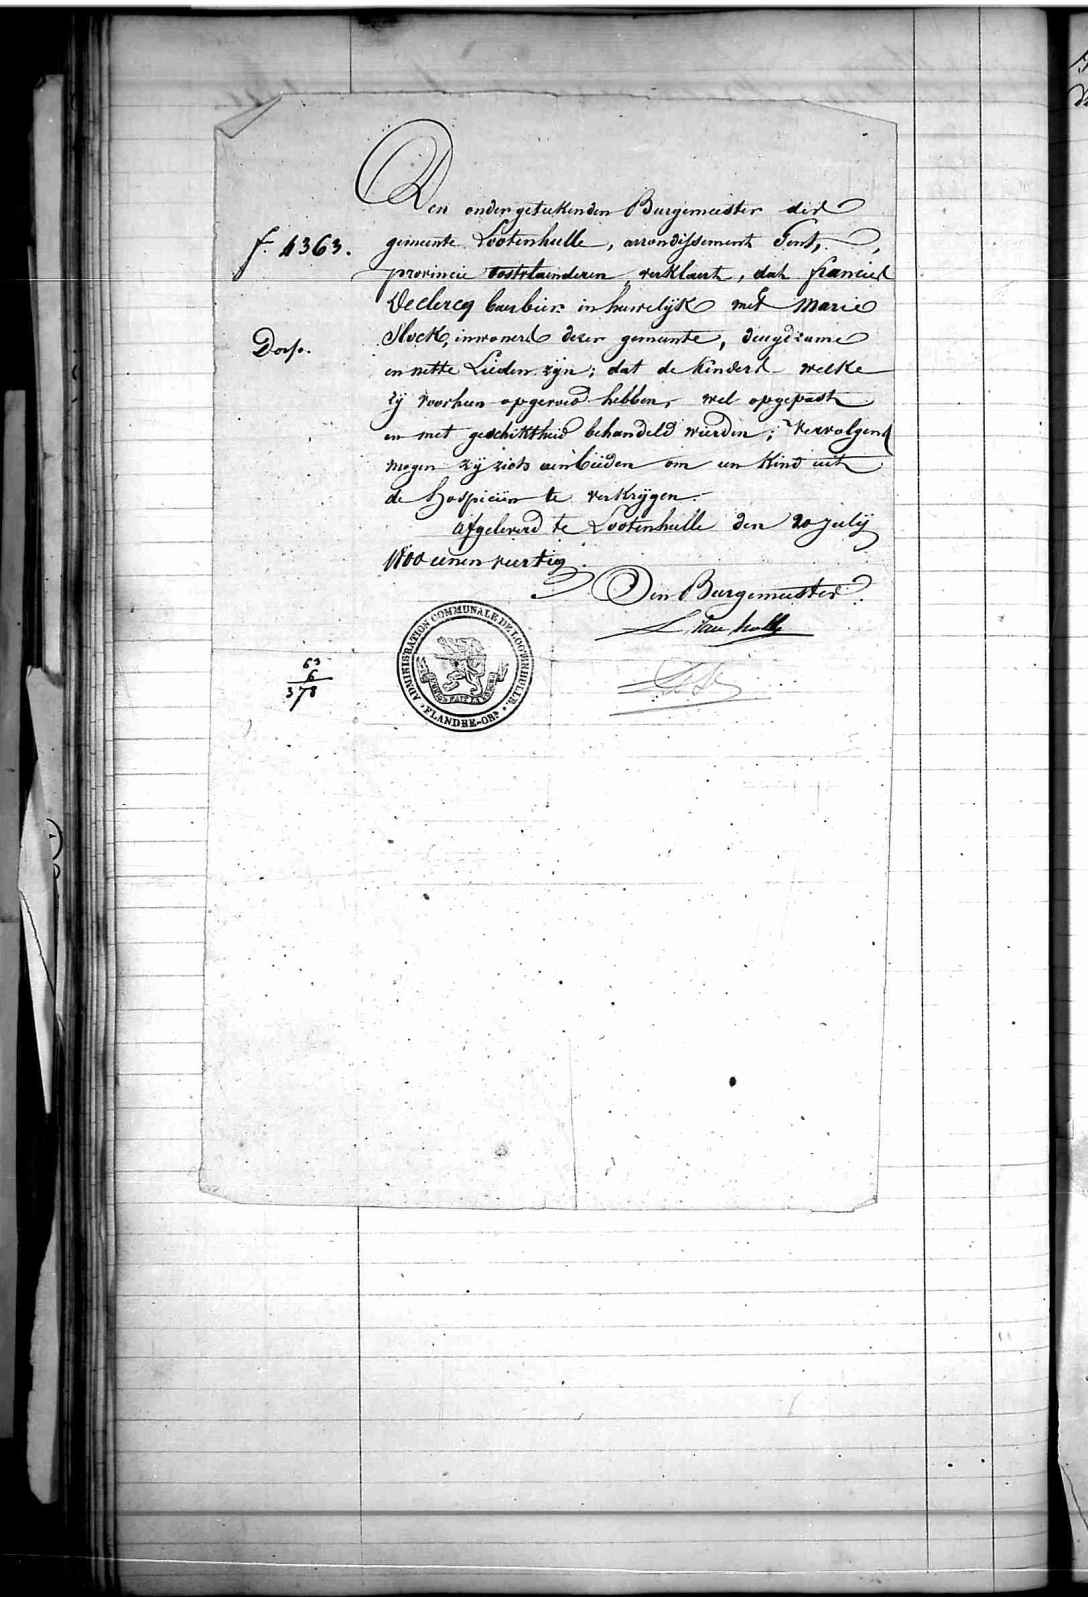 Den ondergeteekenden Burgemeester der
f. 4363. gemeente Lootenhulle, arrondissement Gent,
provincie oostvlaenderen verklaert, dat francies
Declercq baerbier in huwelijk met Marie
Dorp. Slock, inwoners dezer gemeente, deugdzame
en nette Lieden zijn; dat de kinders welke
zij voorheen opgevoed hebben, wel opgepast
en met geschiktheid behandeld wierden; vervolgens
mogen zij zich aenbieden om een kind uit
de hospicien te verkrijgen.
afgeleverd te Lootenhulle den 20 julij
1800 eenen veertig.
Den Burgemeester
L. Van hulle
ADMINISTRATION COMMUNALE DE LOOTENHULLE.
FLANDRE-ORle
63
6
378